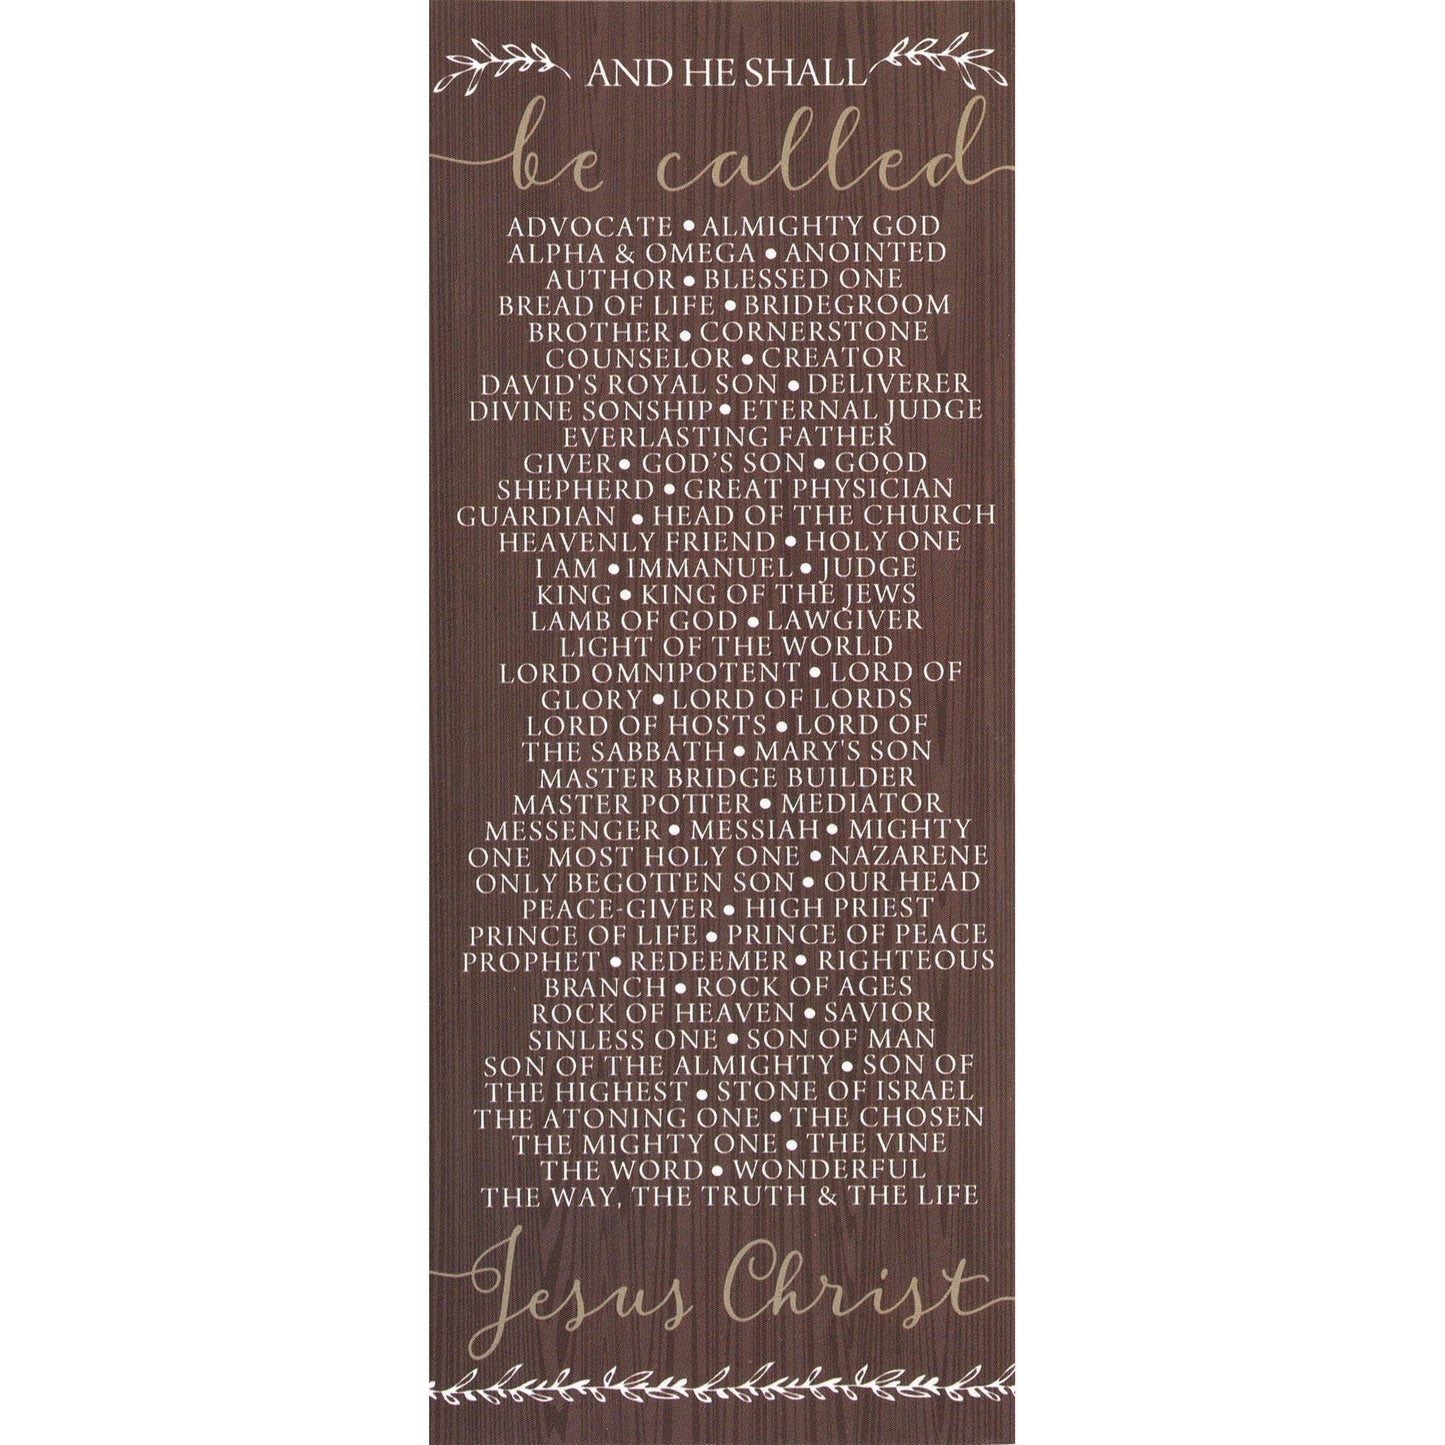 AND HE SHALL
be called
ADVOCATE • ALMIGHTY GOD
ALPHA & OMEGA • ANOINTED
AUTHOR • BLESSED ONE
BREAD OF LIFE • BRIDEGROOM
BROTHER • CORNERSTONE
COUNSELOR • CREATOR
DAVID'S ROYAL SON • DELIVERER
DIVINE SONSHIP • ETERNAL JUDGE
EVERLASTING FATHER
GIVER • GOD'S SON • GOOD
SHEPHERD • GREAT PHYSICIAN
GUARDIAN • HEAD OF THE CHURCH
HEAVENLY FRIEND • HOLY ONE
I AM • IMMANUEL • JUDGE
KING • KING OF THE JEWS
LAMB OF GOD • LAWGIVER
LIGHT OF THE WORLD
LORD OMNIPOTENT • LORD OF
GLORY • LORD OF LORDS
LORD OF HOSTS • LORD OF
THE SABBATH • MARY'S SON
MASTER BRIDGE BUILDER
MASTER POTTER • MEDIATOR
MESSENGER • MESSIAH • MIGHTY
ONE MOST HOLY ONE • NAZARENE
ONLY BEGOTTEN SON • OUR HEAD
PEACE-GIVER • HIGH PRIEST
PRINCE OF LIFE • PRINCE OF PEACE
PROPHET • REDEEMER • RIGHTEOUS
BRANCH • ROCK OF AGES
ROCK OF HEAVEN • SAVIOR
SINLESS ONE • SON OF MAN
SON OF THE ALMIGHTY • SON OF
THE HIGHEST • STONE OF ISRAEL
THE ATONING ONE • THE CHOSEN
THE MIGHTY ONE • THE VINE
THE WORD • WONDERFUL
THE WAY, THE TRUTH & THE LIFE
Jesus Christ